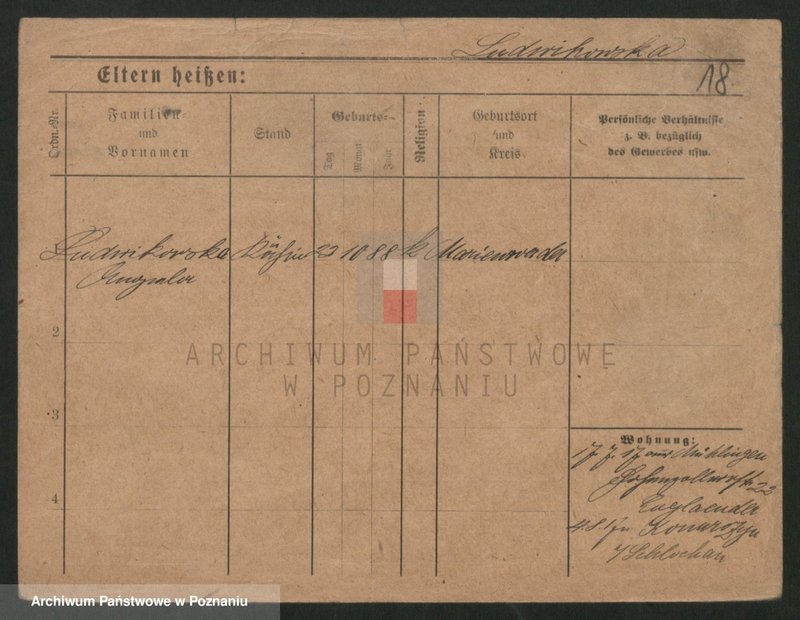 Ludwikowska
Eltern heißen:
18.
Ordn.-Nr.
Familien-
und
Vornamen
Stand
Geburts-
Tag
Monat
Jahr
Religion
Geburtsort
und
Kreis
Persönliche Verhältnisse
z. B. bezüglich
des Gewerbes usw.
Ludwikowska
10 88 k Marienwerder
2
3
4
ARCHIWUM PAŃSTWOWE
W POZNANIU
Wohnung:
17 7. 17 aus Mühlingen
Hohenzollernstr 22
Englaender
4.8.17 n Konarzyn
/Schlochau
Archiwum Państwowe w Poznaniu